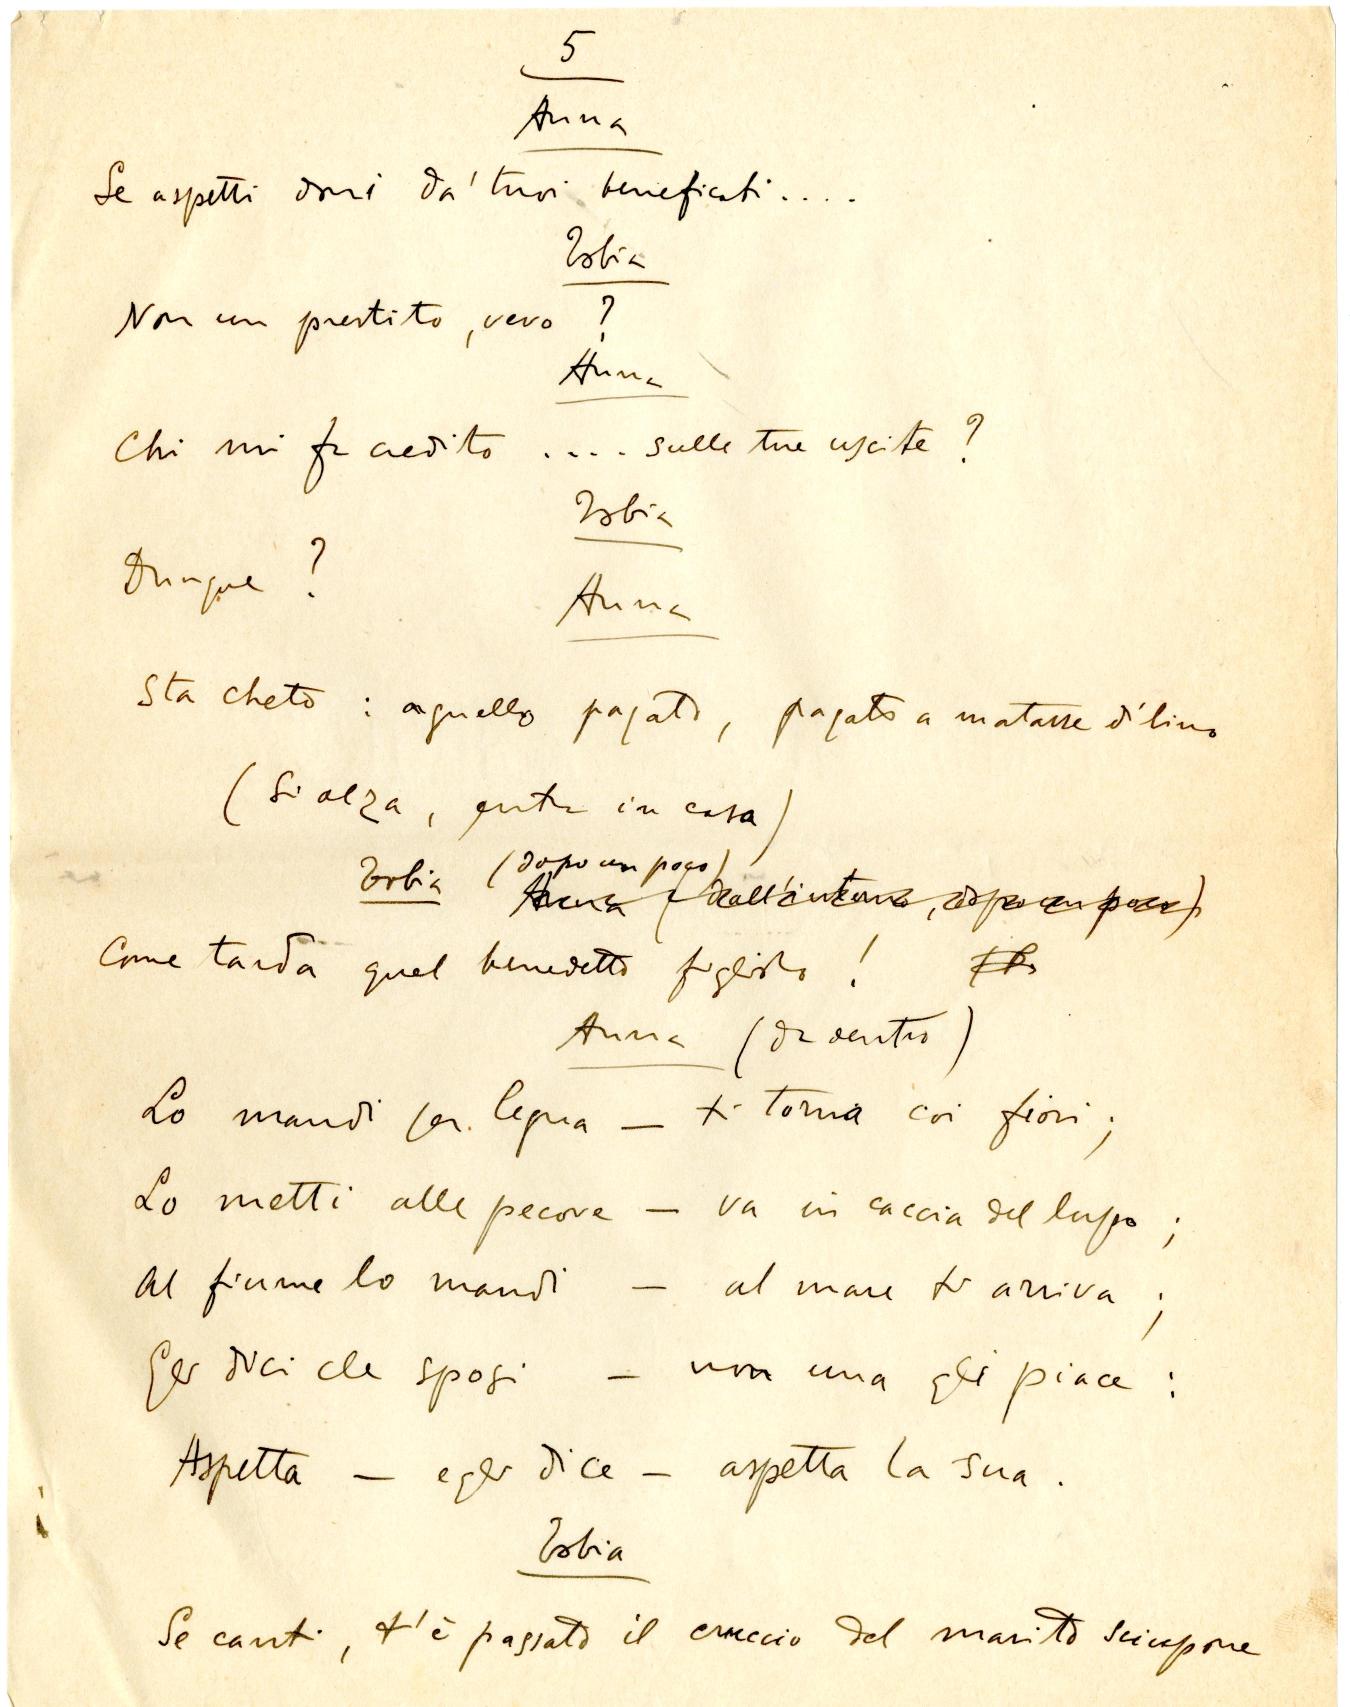 5
Anna
Se aspetti doni da' tuoi beneficati....
Tobia
Non un prestito, vero ?
Anna
Chi mi fa credito .... sulle tue uscite ?
Tobia
Dunque ?
Anna
Sta cheto : agnello pagato, pagato a matasse d'lino
(Si alza, entra in casa)
Tobia (dopo un poco) Anna (dall'interno, dopo un poco)
Come tarda quel benedetto figliolo !
Anna (da dentro)
Lo mandi per legna — ti torna coi fiori ;
Lo metti alle pecore — va in caccia del lupo ;
Al fiume lo mandi — al mare ti arriva ;
Gli dici che sposi — non una gli piace :
Aspetta — egli dice — aspetta la sua .
Tobia
Se canti, t'è passato il cruccio del marito sciupone